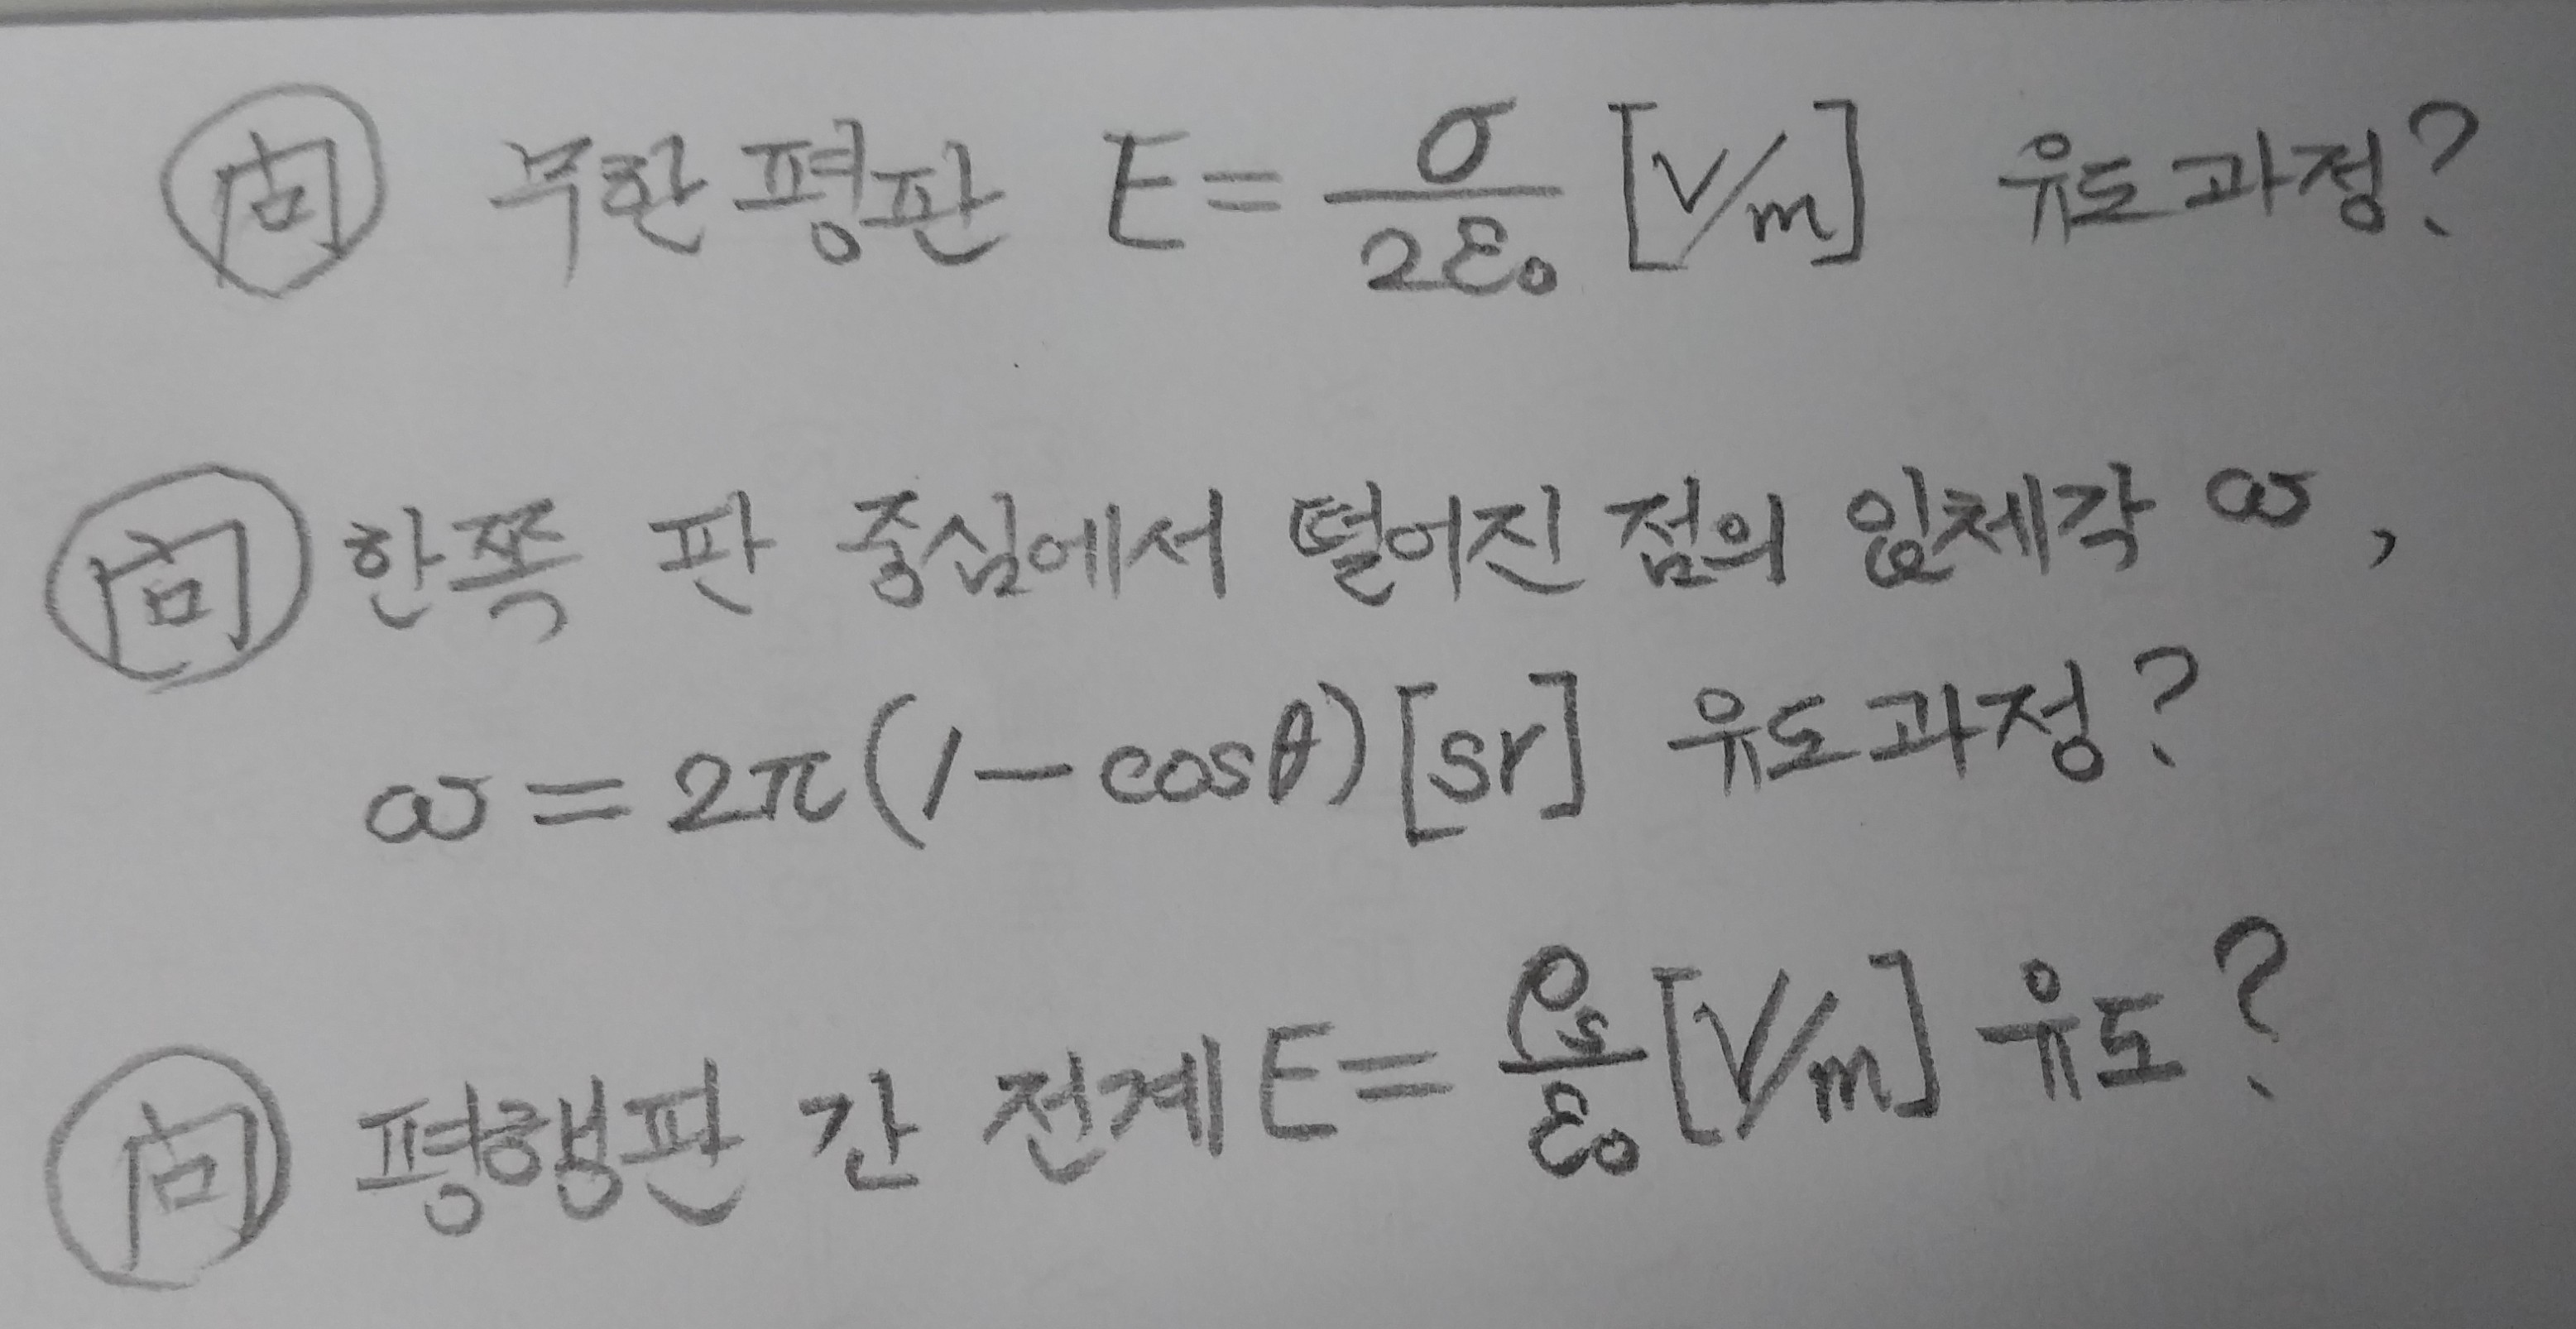 問 무한평판 E = σ/2ε₀ [V/m] 유도과정?
問 한쪽 판 중심에서 떨어진 점의 입체각 ω,
ω = 2π(1-cosθ)[sr] 유도과정?
問 평행판 간 전계 E = ρs/ε₀ [V/m] 유도?